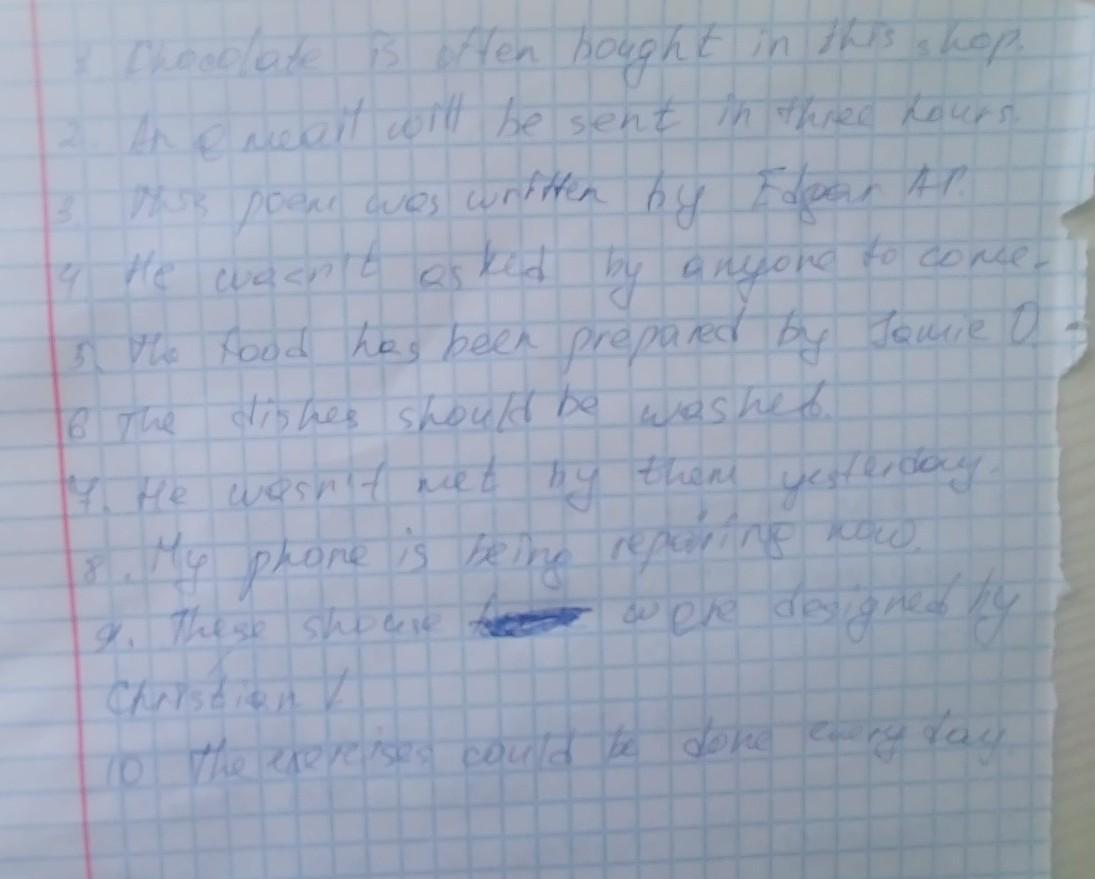 1 Chocolate is often bought in this shop.
2. An email will be sent in three hours.
3. This poem was written by Edgar A.P.
4 He wasn't asked by anyone to come.
5. The food has been prepared by Jamie O.
6 The dishes should be washed.
7. He wasn't met by them yesterday.
8. My phone is being repairing now.
9. These were designed by
Christian L
10 The exercises could be done every day.